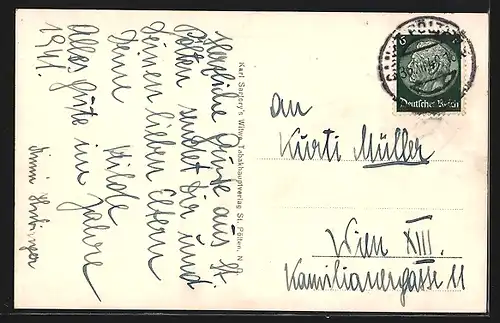 Herzliche Grüße aus St.
Pölten sendet Dir und
Deinen lieben Eltern
Deine Hilde
Alles Gute im Jahre
1941.
Karl Sartory's Witwe, Tabakhauptverlag St. Pölten, N.
SANKT PÖLTEN
6
Deutsches Reich
An
Kurti Müller
Wien XIII.
Kamilianergasse 11